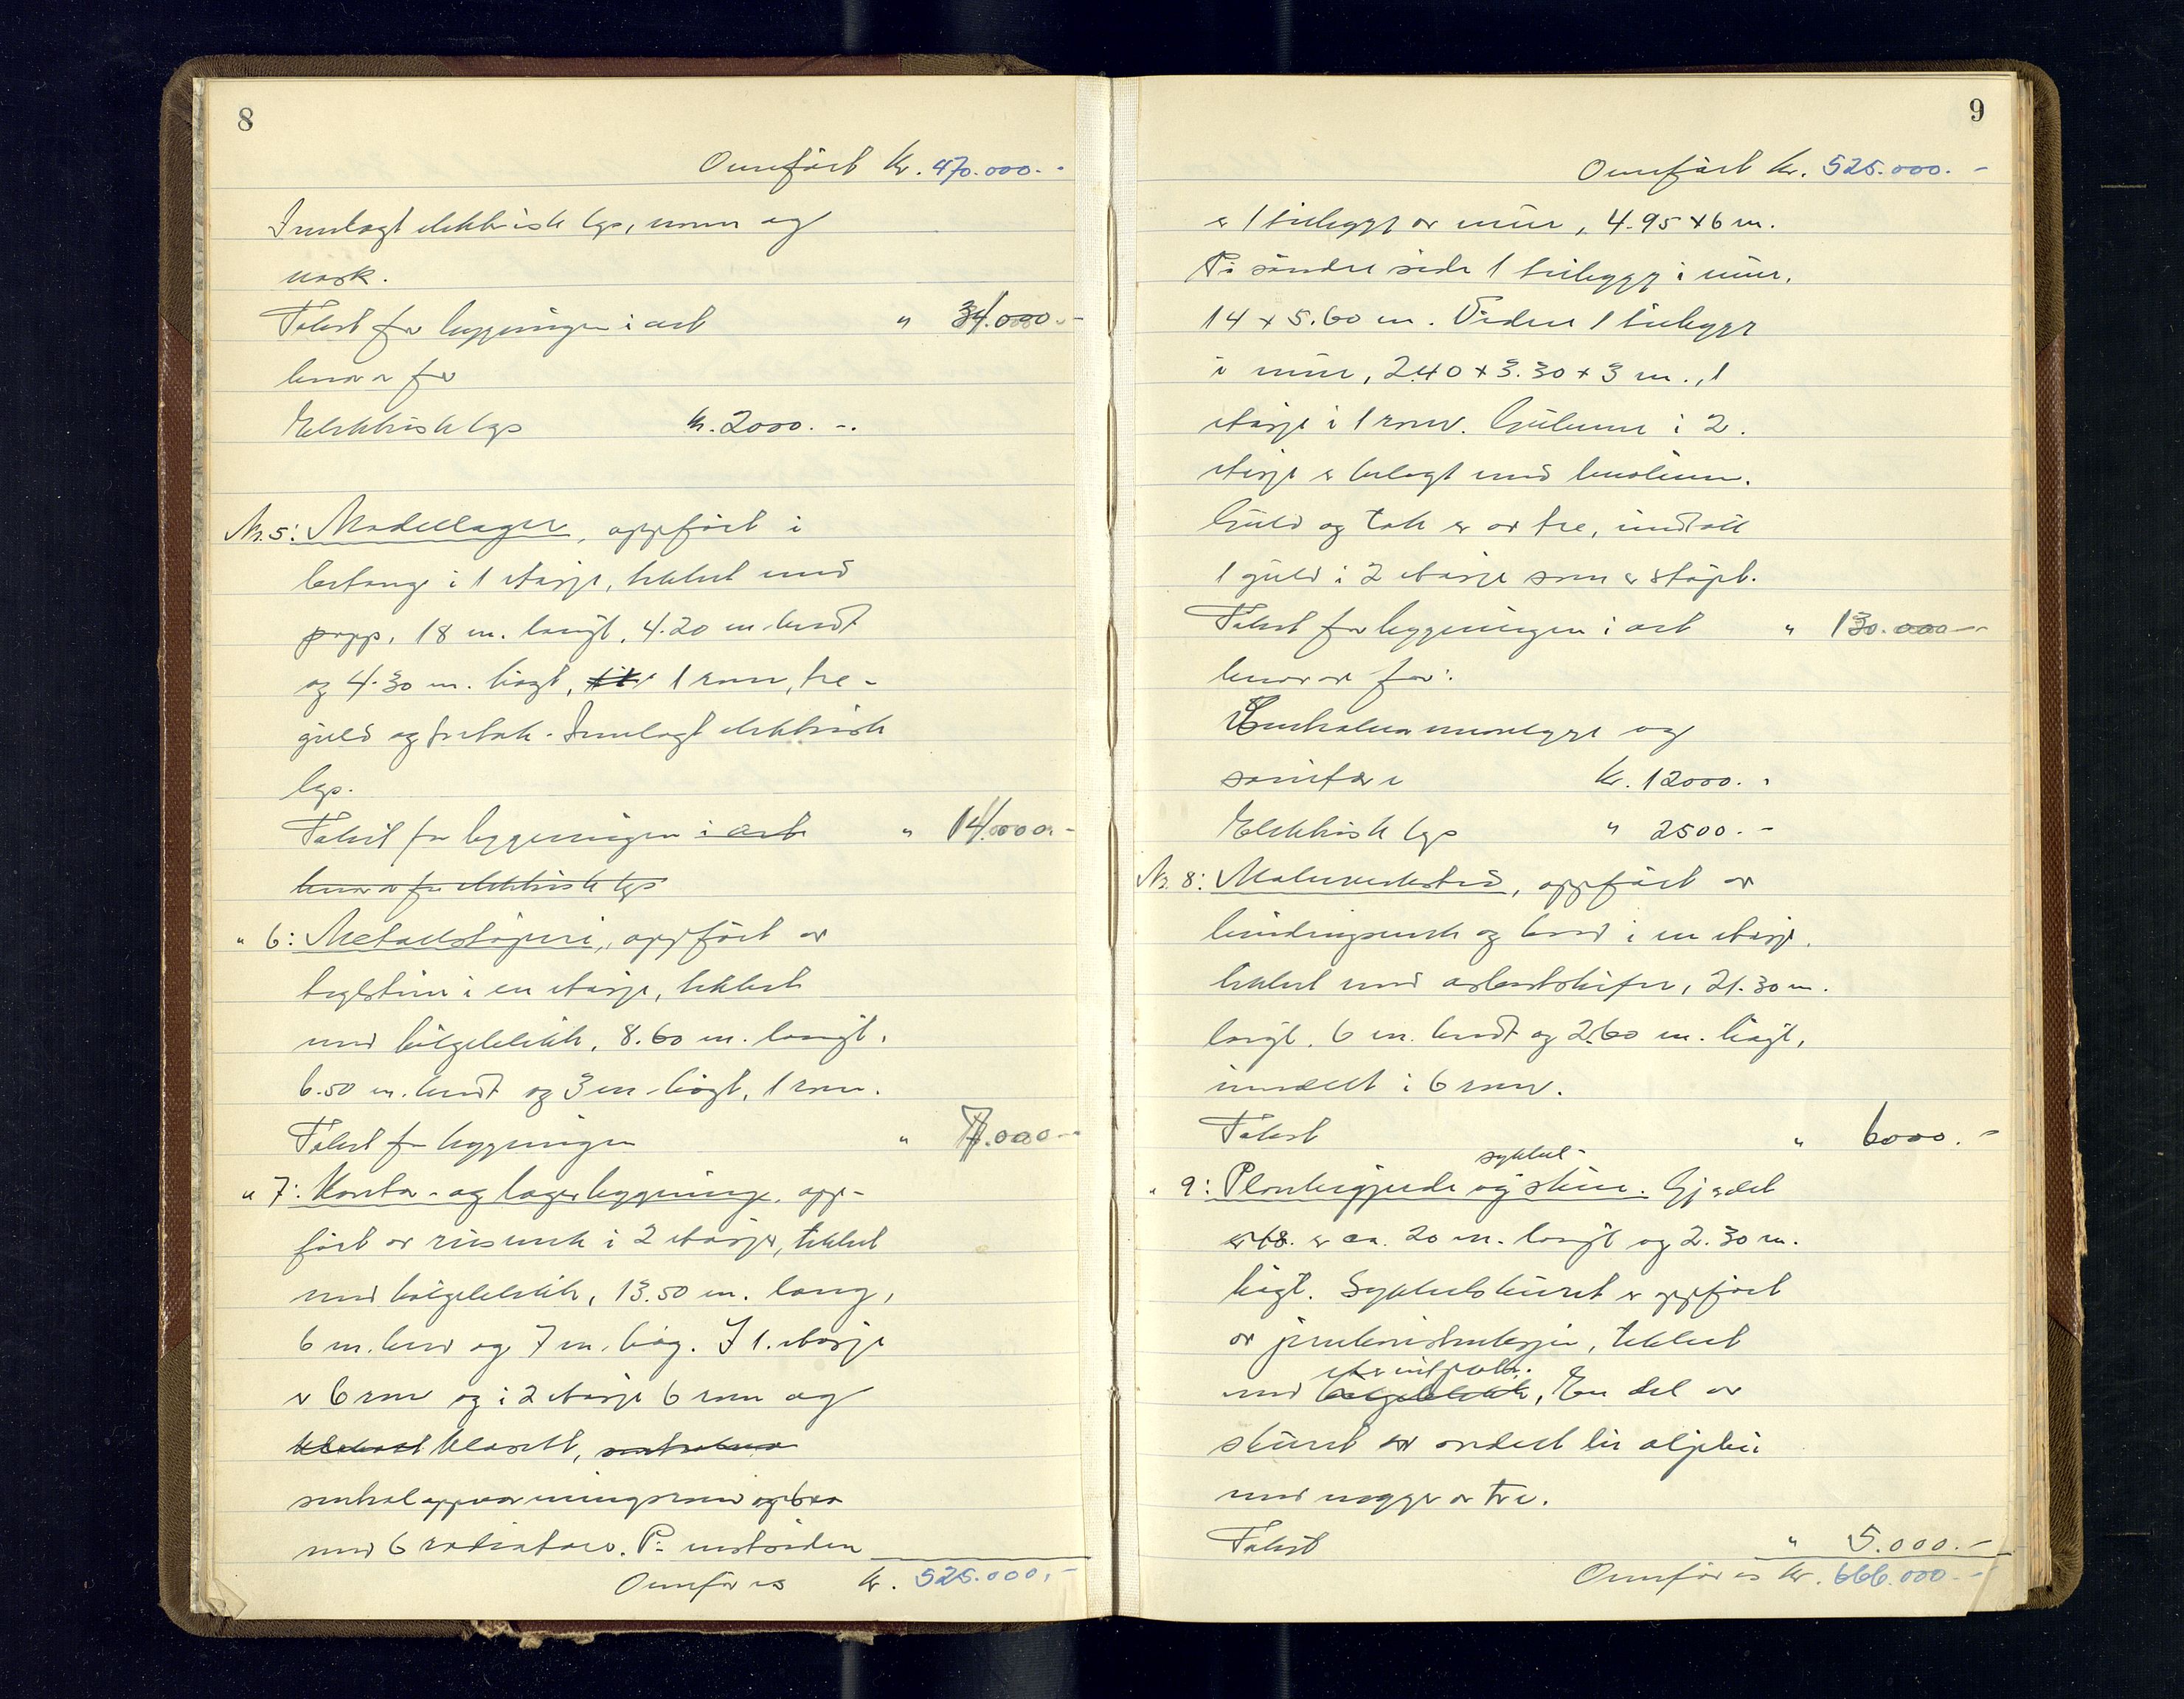 8
Overført kr. 470.000.-
Innlagt elektrisk lys, vann og
vask.
Takst for bygningen i alt " 34.000.-
herav for
Elektrisk lys kr. 2000.-.
Nr. 5: Modellager, oppført i
betong i 1 etasje, tekket med
papp, 18 m. langt, 4.20 m bredt
og 4.30 m. høgt, 1 rom, tre-
gulv og tretak. Innlagt elektrisk
lys.
Takst for bygningen i alt " 14.000.-
herav for elektrisk lys
" 6: Metallstøperi, oppført av
teglstein i en etasje, tekket
med bølgeblikk, 8.60 m. langt,
6.50 m. bredt og 3 m høgt, 1 rom.
Takst for bygningen " 7.000.-
" 7: Kontor- og lagerbygning, opp-
ført av reisverk i 2 etasjer, tekket
med bølgeblikk, 13.50 m. lang,
6 m. bred og 7 m. høg. I 1. etasje
er 6 rom og i 2 etasje 6 rom og
klosett,
sentraloppvarmingsrom
med 6 radiatorer. På vestsiden
Overføres kr. 525.000,-
9
Overført kr. 525.000.-
er 1 tilbygg av mur, 4.95 x 6 m.
På søndre side 1 tilbygg i mur,
14 x 5.60 m. Videre 1 tilbygg
i mur, 2.40 x 3.30 x 3 m., 1
etasje i 1 rom. Gulvene i 2.
etasje er belagt med linoleum.
Gulv og tak er av tre, unntatt
1 gulv i 2 etasje som er støpt.
Takst for bygningen i alt " 130.000.-
herav for:
Sentralvarmeanlegg og
sanitær kr. 12000.-
Elektrisk lys " 2500.-
Nr. 8: Malerverksted, oppført av
bindingsverk og bord i en etasje,
tekket med asbestskifer, 21.30 m.
langt, 6 m. bredt og 2.60 m. høgt,
inndelt i 6 rom.
Takst " 6000.-
sykkel-
" 9: Plankegjerde og skur. Gjerdet
er ca. 20 m. langt og 2.30 m.
høgt. Sykkelskuret er oppført
av jernkonstruksjon, tekket
med bølgeblikk, En del av
skuret er avdelt til oljebu
med vegger av tre.
Takst " 5.000.-
Overføres kr. 666.000.-